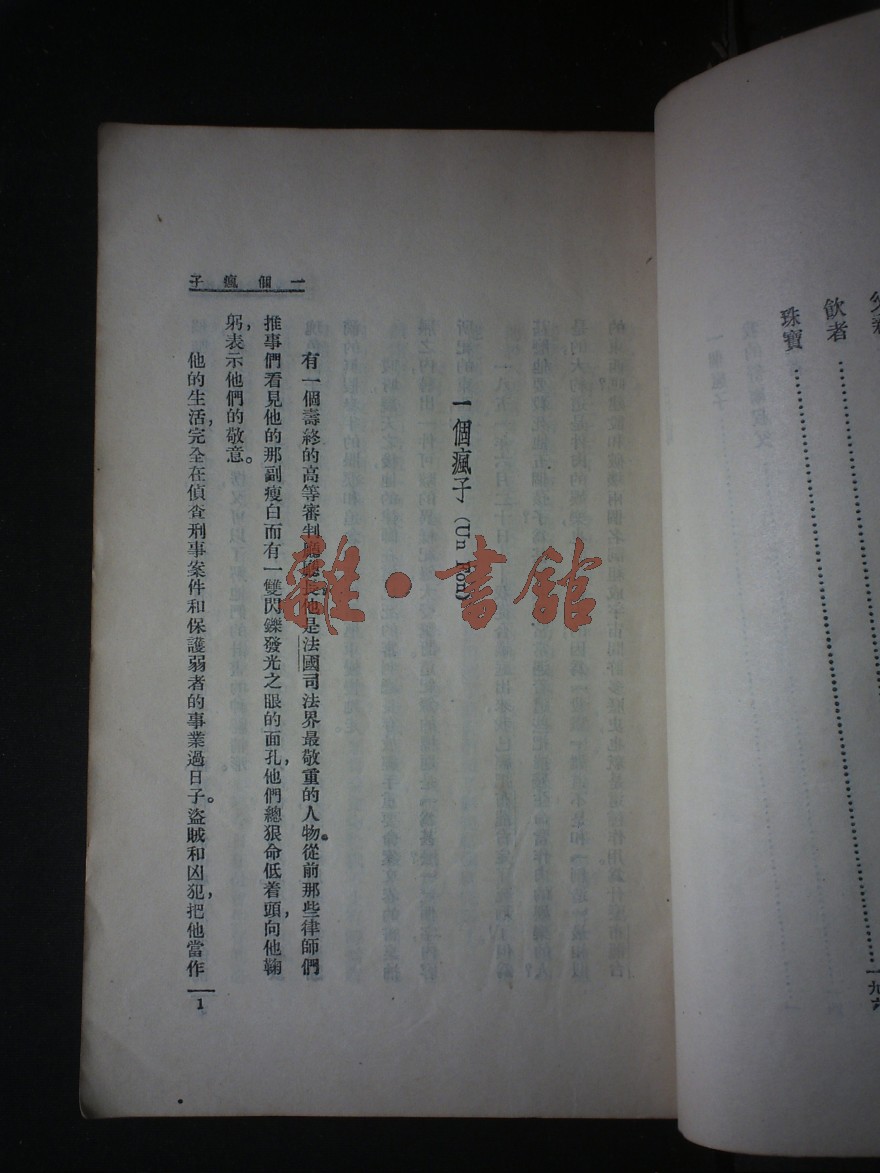 父親
飲者……………………一九六
珠寶……………………
一個瘋子 (Un Fou)
有一個壽終的高等審判廳廳長他是法國司法界最敬重的人物。從前那些律師們
推事們看見他的那副瘦白而有一雙閃鑠發光之眼的面孔，他們總狠命低着頭，向他鞠
躬，表示他們的敬意。
他的生活，完全在偵查刑事案件和保護弱者的事業過日子。盜賊和凶犯，把他當作
一個瘋子
1
雜·書館